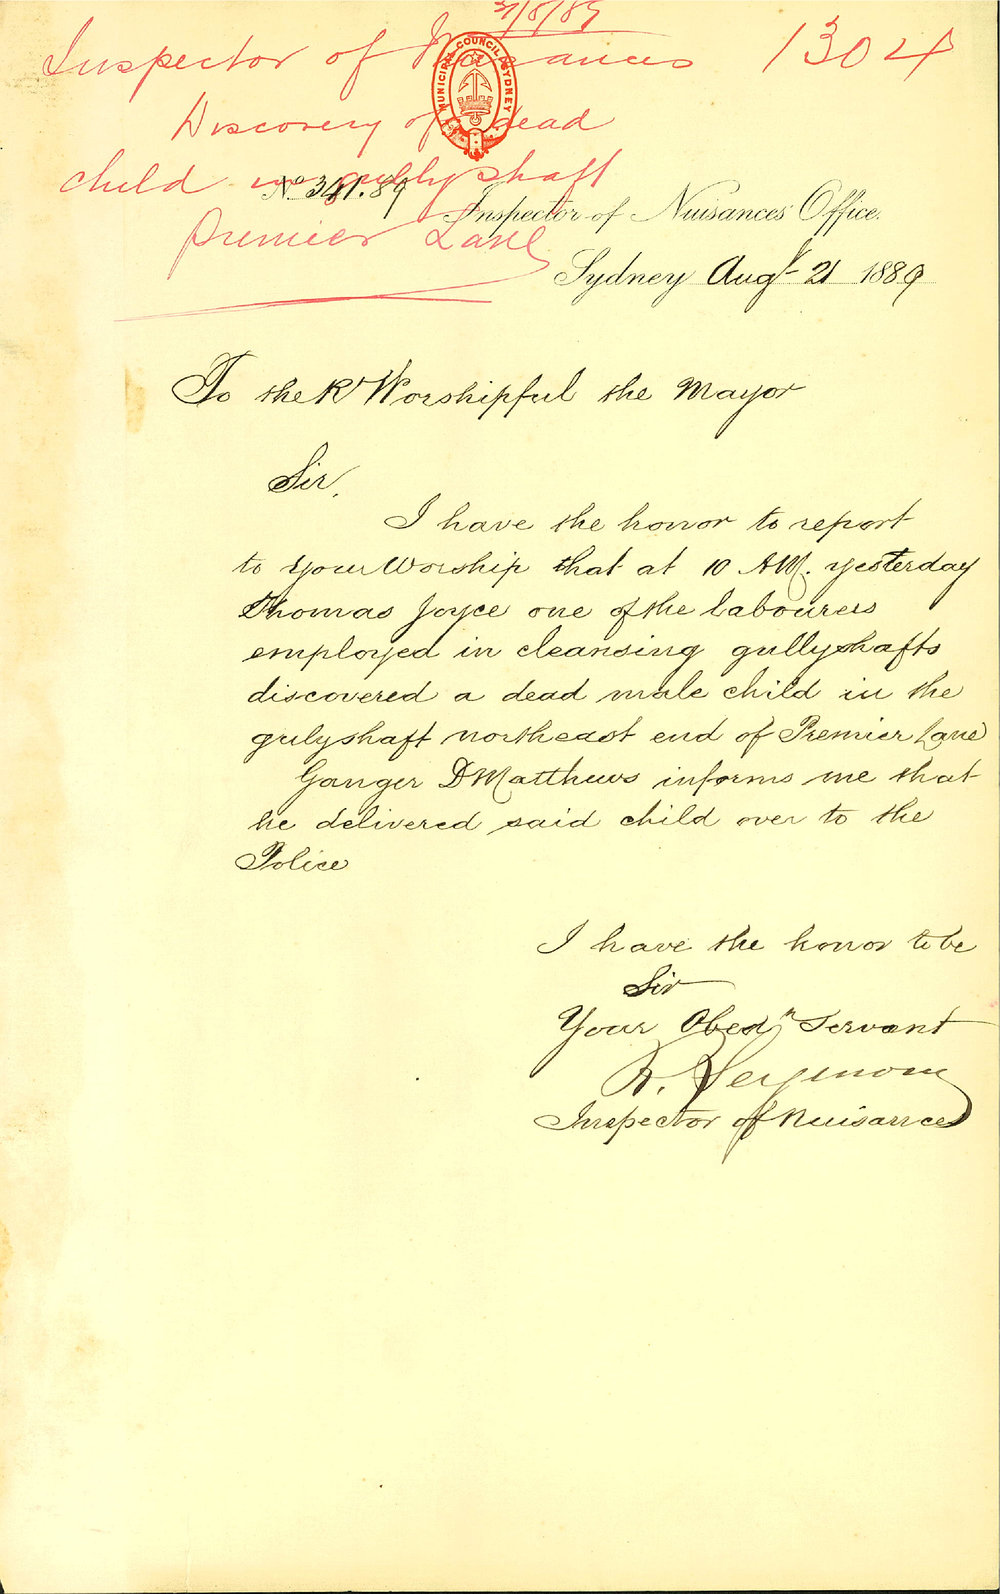 21/8/89
Inspector of Nuisances 1304
MUNICIPAL COUNCIL SYDNEY
Discovery of dead
child in gullyshaft
Premier Lane
No 341.89
Inspector of Nuisances Office.
Sydney Augt 21 1889
To the Rt Worshipful the Mayor
Sir,
I have the honor to report
to Your Worship that at 10 AM. yesterday
Thomas Joyce one of the labourers
employed in cleansing gullyshafts
discovered a dead male child in the
gulyshaft northeast end of Premier Lane
Ganger D Matthews informs me that
he delivered said child over to the
Police
I have the honor to be
Sir
Your Obedt Servant
R. Seymour
Inspector of Nuisances